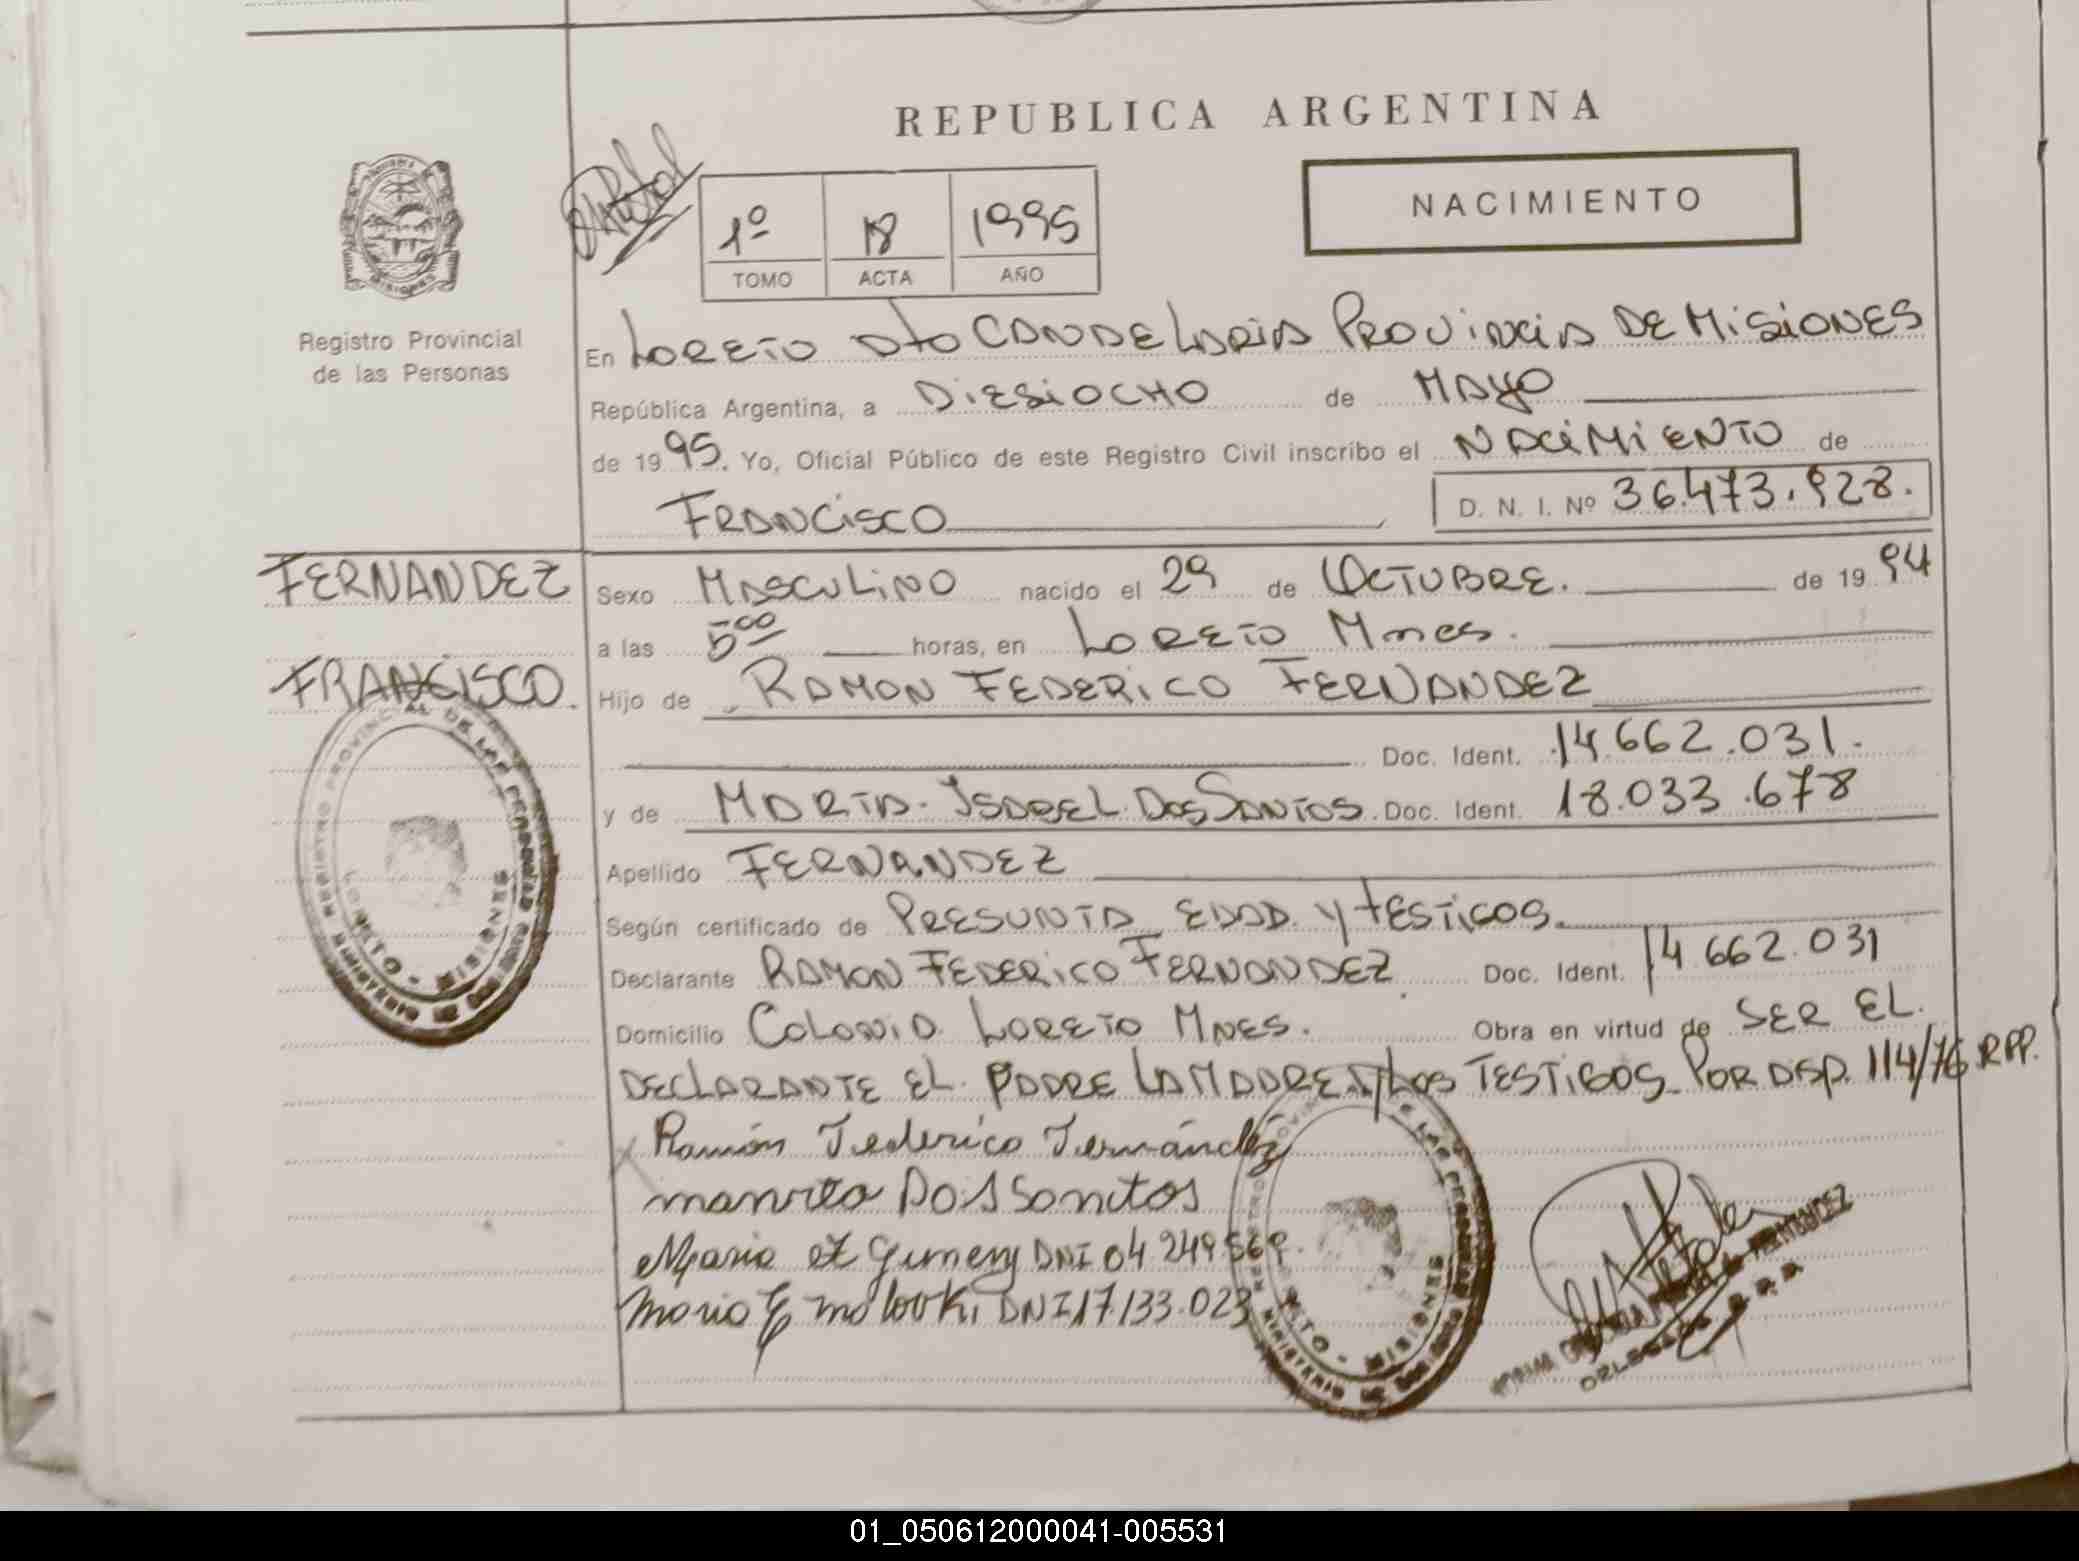 REPUBLICA ARGENTINA
NACIMIENTO
1º 18 1995
TOMO ACTA AÑO
Registro Provincial
de las Personas
En LORETO Dto CANDELARIA PROVINCIA DE MISIONES
República Argentina, a DIESIOCHO de MAYO
de 1995. Yo, Oficial Público de este Registro Civil inscribo el NACIMIENTO de
FRANCISCO D. N. I. Nº 36.473.928.
FERNANDEZ
FRANCISCO.
Sexo MASCULINO nacido el 29 de OCTUBRE. de 1994
a las 5 00 horas, en LORETO Mnes.
Hijo de RAMON FEDERICO FERNANDEZ
Doc. Ident. 14.662.031.
y de MARIA ISABEL DOS SANTOS. Doc. Ident. 18.033.678
Apellido FERNANDEZ
Según certificado de PRESUNTA EDAD. Y TESTIGOS.
Declarante RAMON FEDERICO FERNANDEZ Doc. Ident. 14.662.031
Domicilio COLONIA LORETO MNES. Obra en virtud de SER EL.
DECLARANTE EL PADRE LA MADRE Y LOS TESTIGOS POR DISP. 114/76 RPP.
Ramón Federico Fernández
DOS Sonctos
Maria DNI 04.249.569.
Maria DNI 17.133.023
REGISTRO PROVINCIAL DE LAS PERSONAS
LORETO - MISIONES
REGISTRO PROVINCIAL DE LAS PERSONAS
LORETO - MISIONES
FERNANDEZ
DELEGADA
01_050612000041-005531